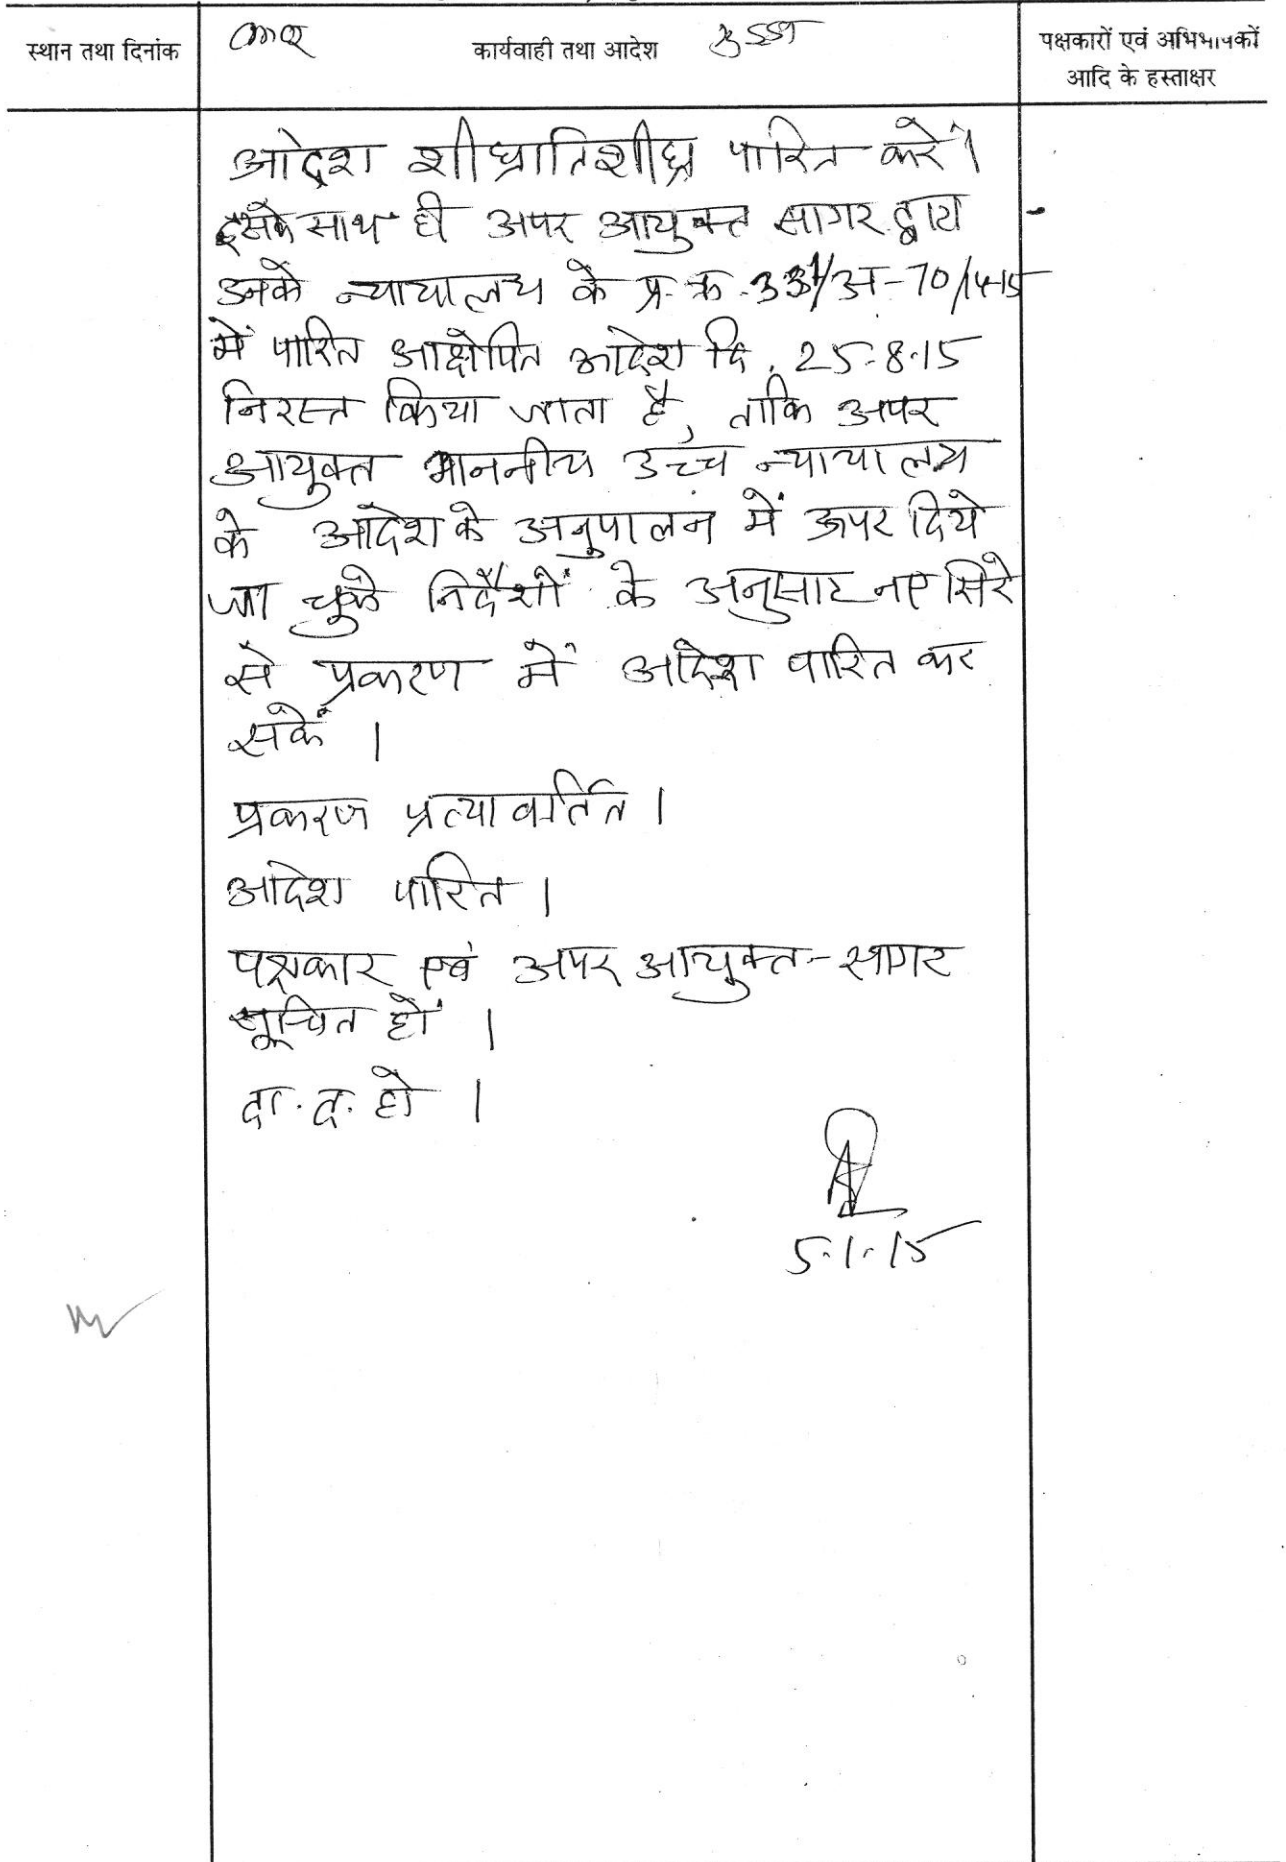 स्थान तथा दिनांक
कार्यवाही तथा आदेश
पक्षकारों एवं अभिभाषकों
आदि के हस्ताक्षर
आदेश शीघ्रातिशीघ्र पारित करें।
इसके साथ ही अपर आयुक्त सागर द्वारा
उनके न्यायालय के प्र. क्र. 331/अ-70/14-15
में पारित आक्षेपित आदेश दि. 25.8.15
निरस्त किया जाता है, ताकि अपर
आयुक्त माननीय उच्च न्यायालय
के आदेश के अनुपालन में ऊपर दिये
जा चुके निर्देशों के अनुसार नए सिरे
से प्रकरण में आदेश पारित कर
सकें ।
प्रकरण प्रत्यावर्तित ।
आदेश पारित ।
पक्षकार एवं अपर आयुक्त - सागर
सूचित हों ।
दा. द. हो ।
5.1.15